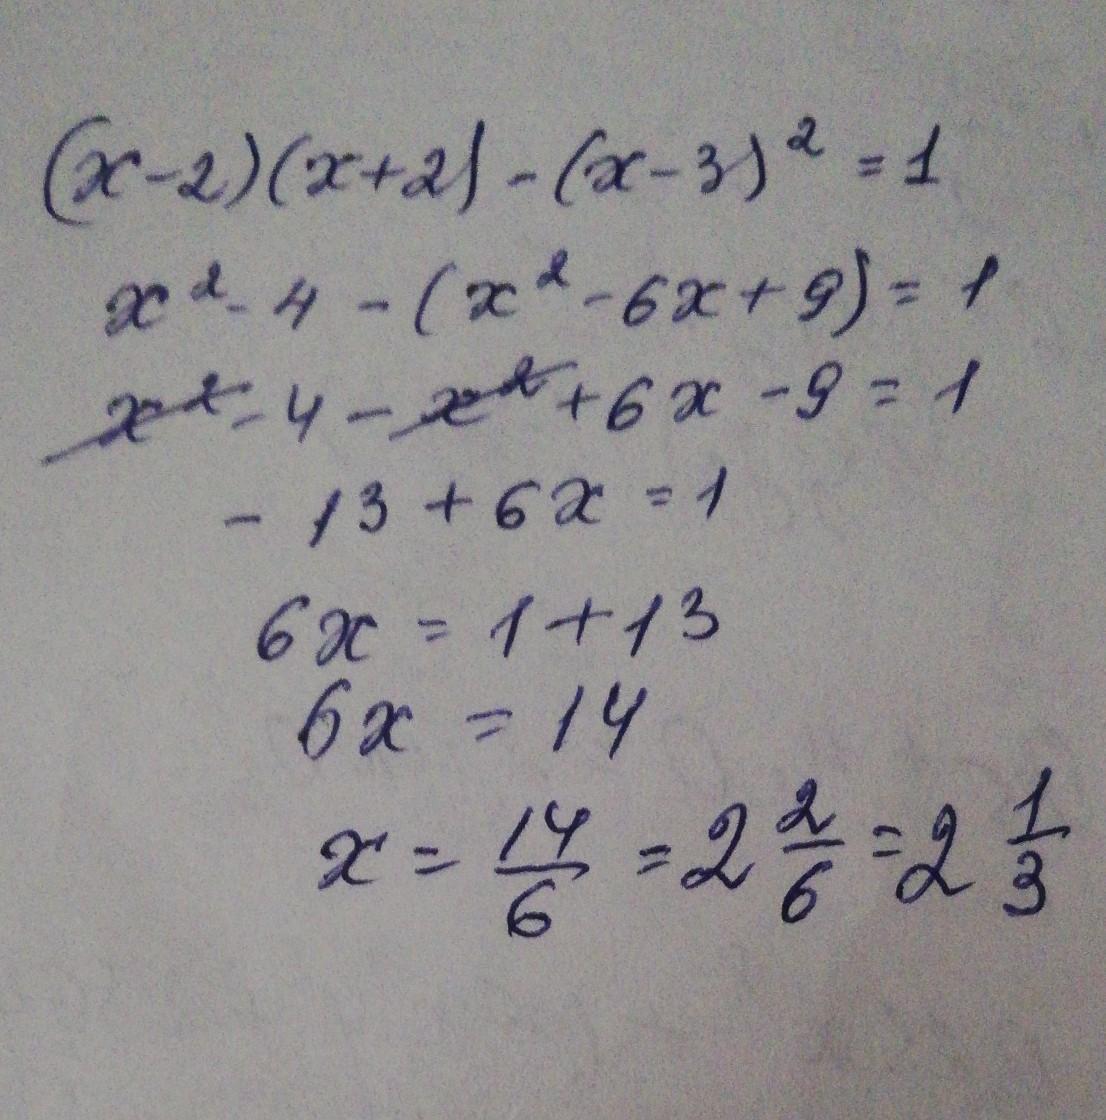 (x-2)(x+2) - (x-3)² = 1
x² - 4 - (x² - 6x + 9) = 1
x² - 4 - x² + 6x - 9 = 1
- 13 + 6x = 1
6x = 1 + 13
6x = 14
x = 14/6 = 2 2/6 = 2 1/3